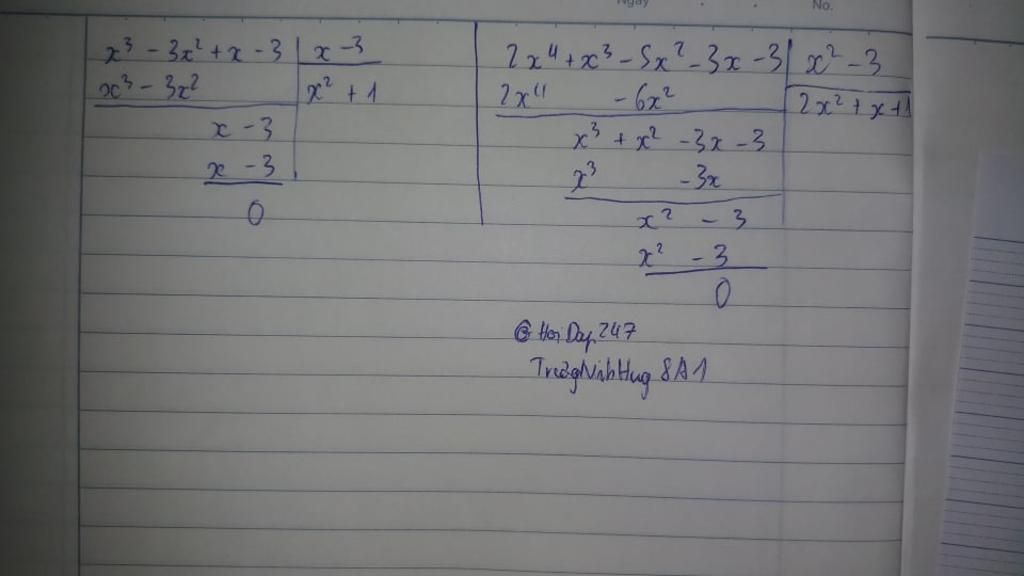 Ngày
No.
x³ - 3x² + x - 3 | x - 3
x³ - 3x² | x² + 1
x - 3
x - 3
0
2x⁴ + x³ - 5x² - 3x - 3 | x² - 3
2x⁴ - 6x² | 2x² + x + 1
x³ + x² - 3x - 3
x³ - 3x
x² - 3
x² - 3
0
@HoiDap247
8A1